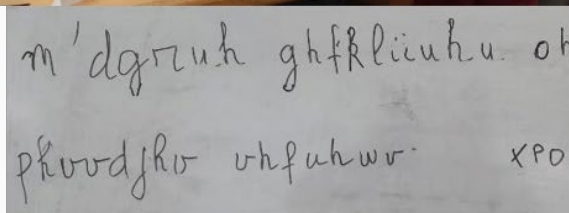 m'dgruh ghfkliiuhu oh
phvvdjhv vhfuhwv. XPO